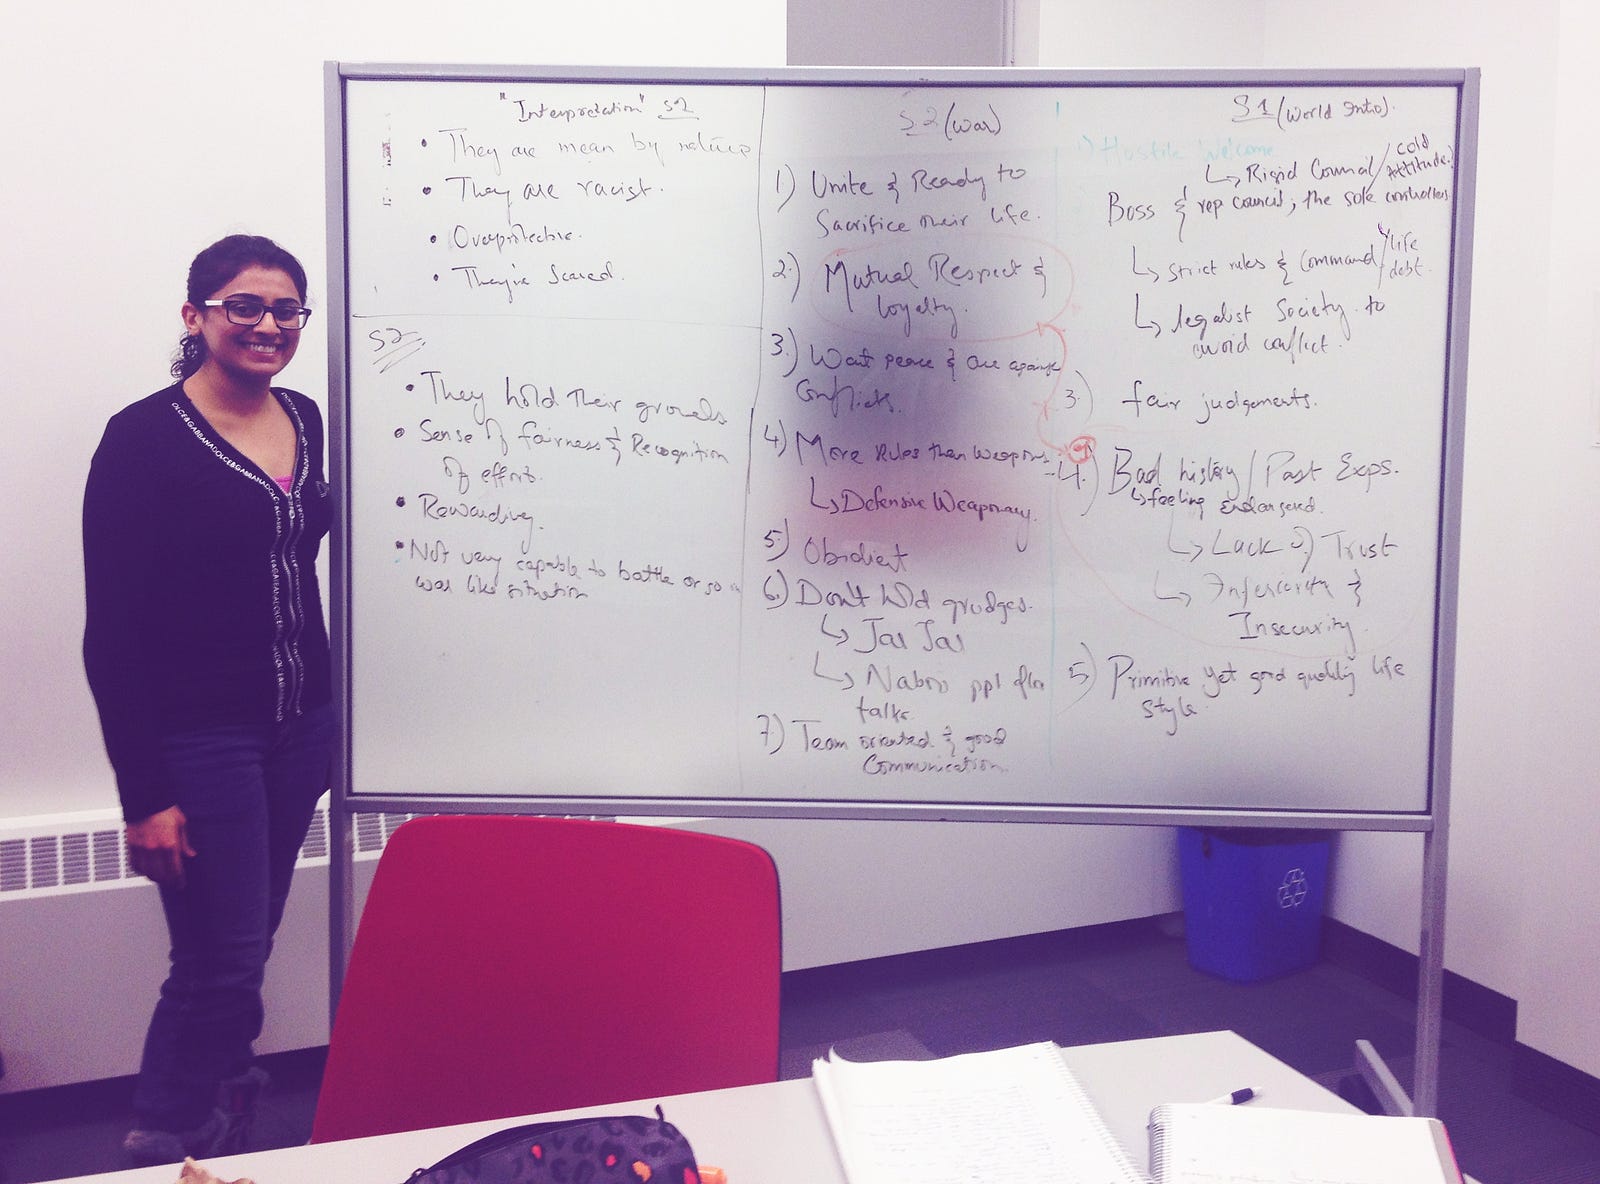 "Interpretation" S2
• They are mean by nature
• They are racist.
• Overprotective.
• They're Scared.
S2
• They hold their grounds
• Sense of fairness & Recognition
of effort.
• Rewarding.
• Not very capable to battle or so in
war like situation
S2 (War)
1) Unite & Ready to
Sacrifice their life.
2) Mutual Respect &
loyalty.
3.) Want peace & are against
Conflicts.
4) More Rules than weapons
↳ Defensive Weaponary.
5) Obidient
6) Don't hold grudges.
↳ Jar Jar
↳ ppl
talks.
7) Team oriented & good
Communication.
S1 (World Intro).
1) Hostile Welcome
↳ Rigid Council / Cold
Attitude.
Boss & rep council; the sole controllers
↳ Strict rules & Command / life
debt.
↳ legalist Society to
avoid conflict.
3.) fair judgements.
4.) Bad history / Past Exps.
↳ feeling Endangered.
↳ Lack of Trust
↳ Inferiority &
Insecurity.
5) Primitive yet good quality life
style.
DOLCE&GABBANADOLCE&GABBANADOLCE